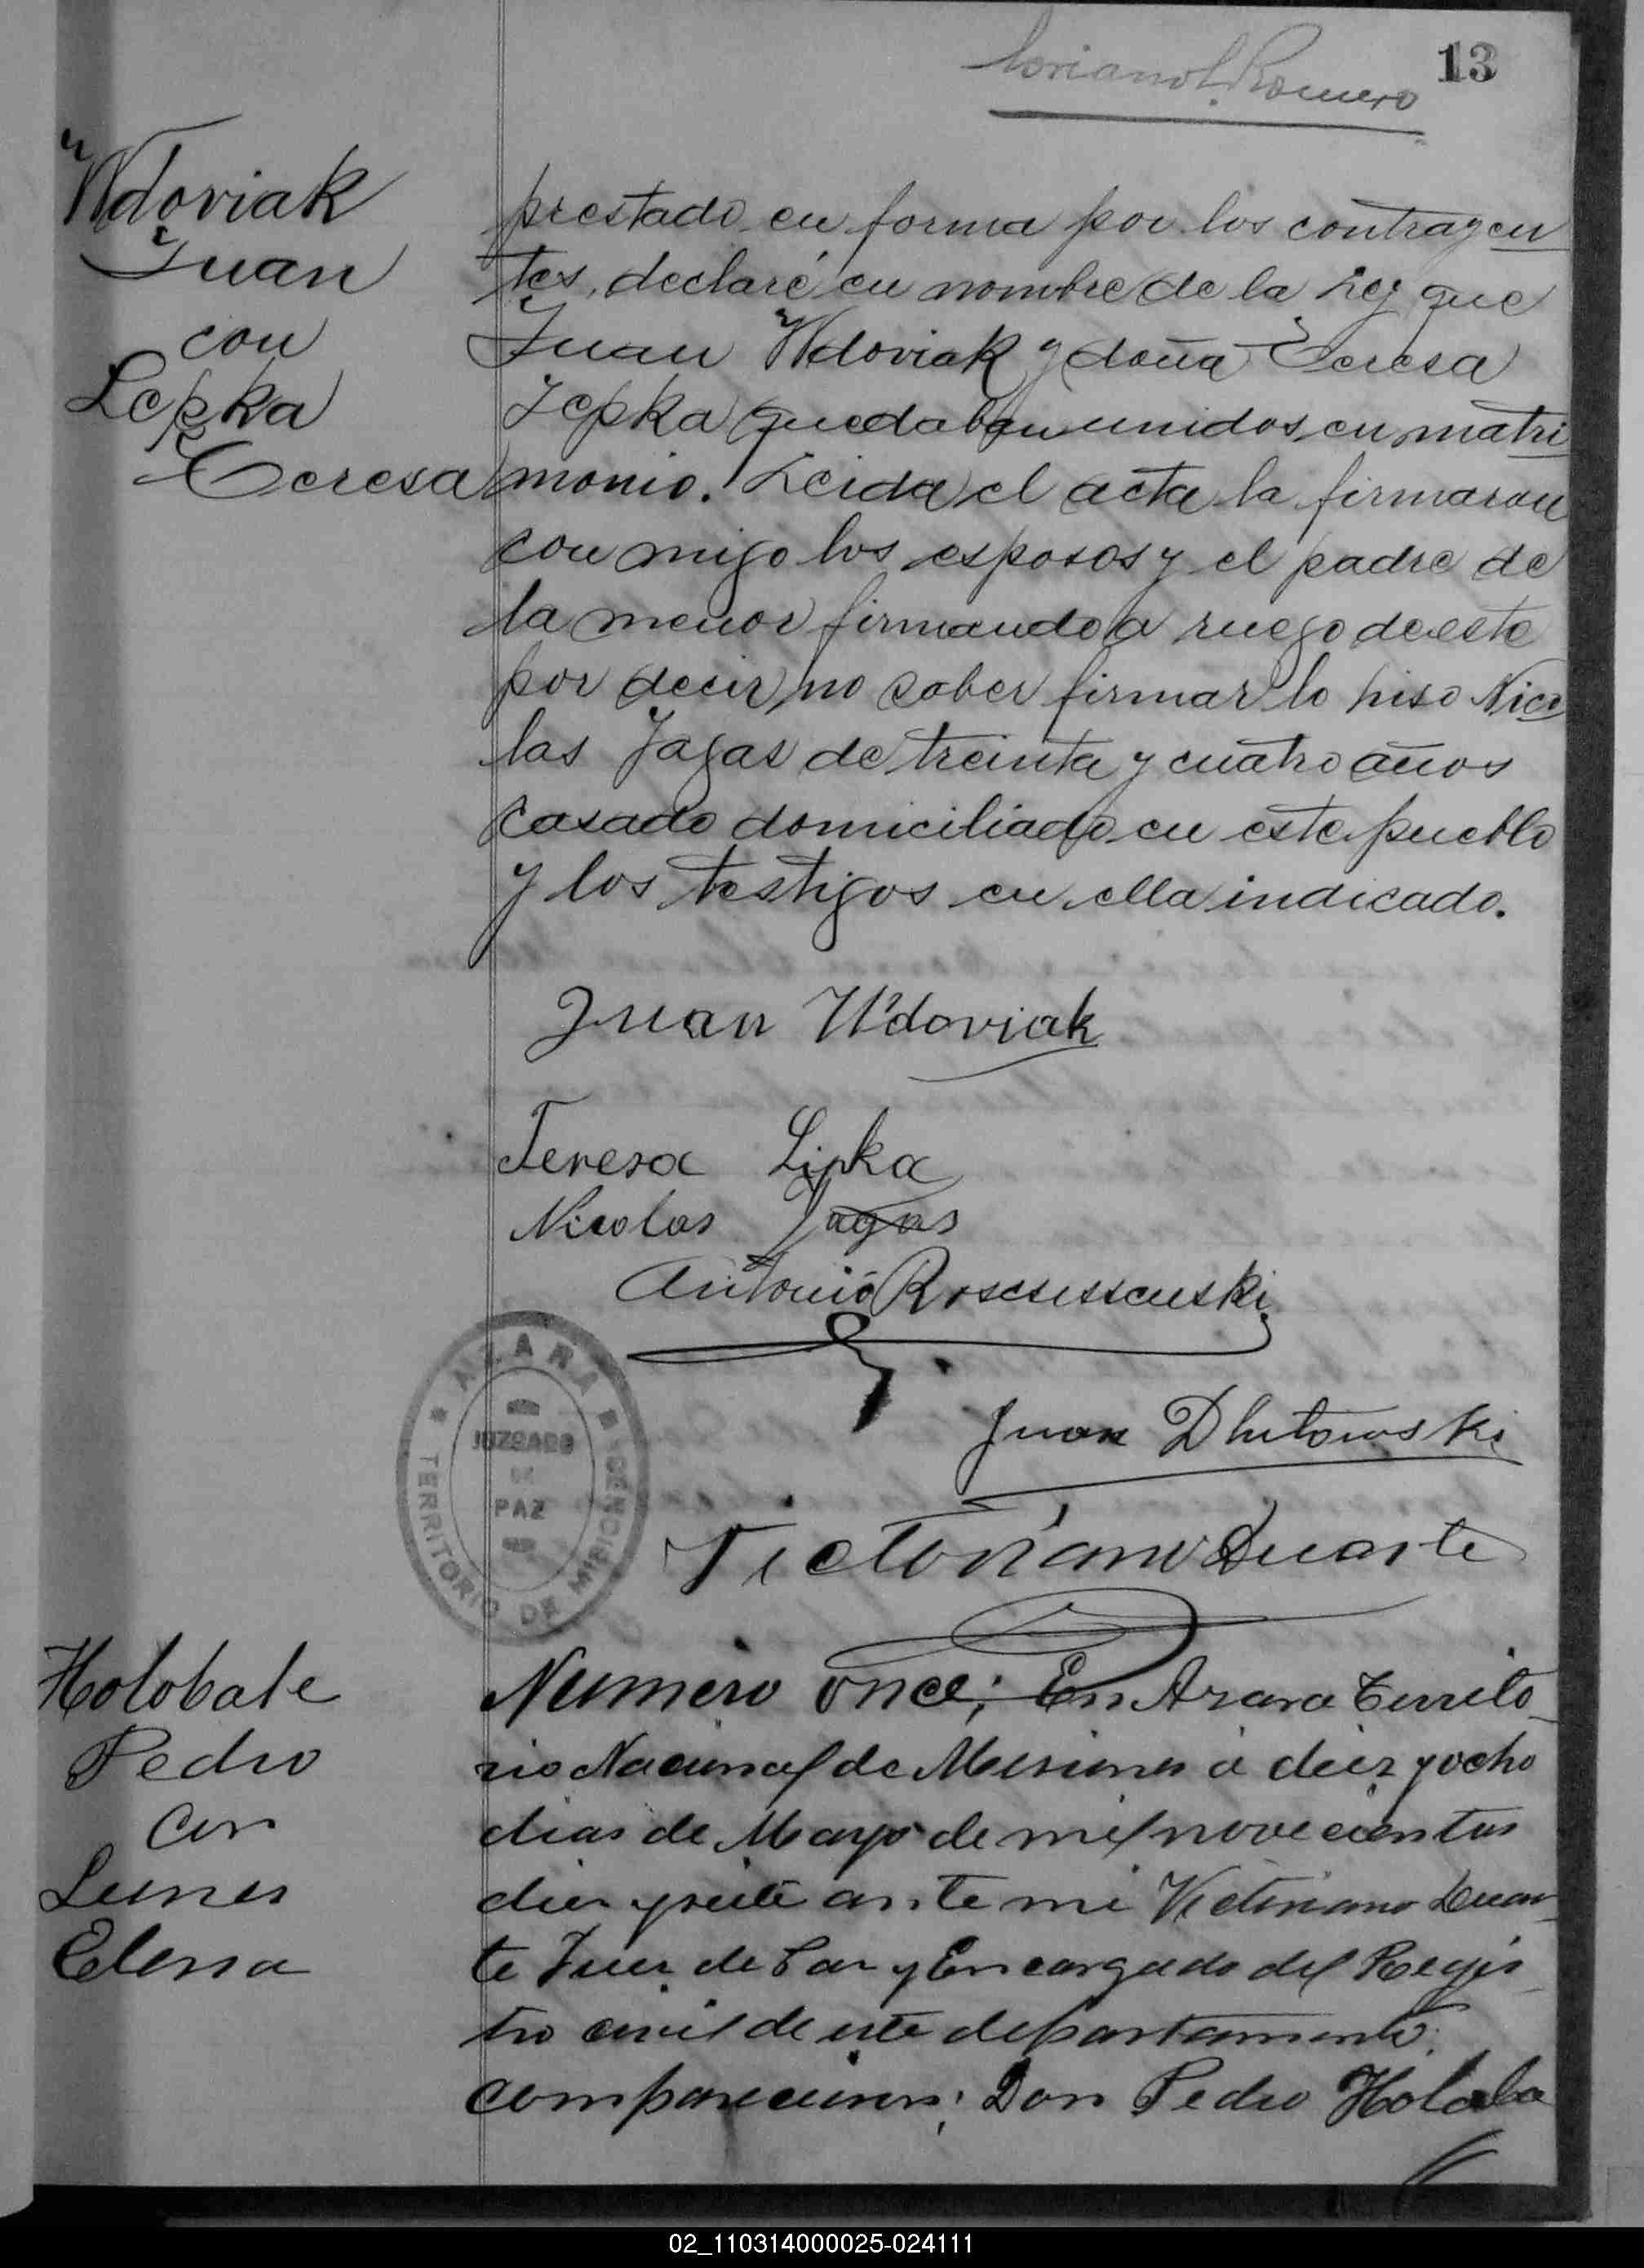 13
Romero
Wdoviak
Juan
con
Lepka
Teresa
prestado en forma por los contrayen
tes, declaré en nombre de la Ley que
Juan Wdoviak y doña Teresa
Lepka quedaban unidos en matri
monio. Leida el acta la firmaron
con migo los esposos y el padre de
la menor firmando a ruego de este
por decir no saber firmar lo hiso Nico
las Jagas de treinta y cuatro años
casado domiciliado en este pueblo
y los testigos en ella indicado.
Juan Wdoviak
Teresa Lipka
Nicolas Jagas
Antonio
Juan Dlutowski
Victoriano Duarte
AZARA
JUZGADO
DE
PAZ
TERRITORIO DE MISIONES
Holobate
Pedro
con
Lunes
Elena
Numero once; En Azara Territo
rio Nacional de Misiones á diez y ocho
dias de Mayo de mil novecientos
diez y siete ante mi Victoriano Duar
te Juez de Paz y Encargado del Regis
tro civil de este departamento.
comparecieron; Don Pedro Holoba
02_110314000025-024111